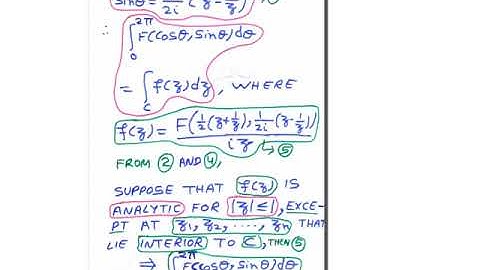 sinθ = 1/2i (z - 1/z)
∴
∫₀^2π F(cosθ, sinθ)dθ
= ∫_C f(z)dz, WHERE
f(z) = F(1/2(z+1/z), 1/2i(z-1/z)) / iz → ⑤
FROM ② AND ④,
SUPPOSE THAT f(z) IS
ANALYTIC FOR |z| ≤ 1, EXCE-
PT AT z₁, z₂, ...., zn THAT
LIE INTERIOR TO C, THEN ⑤
⇒ ∫^2π F(cosθ, sinθ)dθ